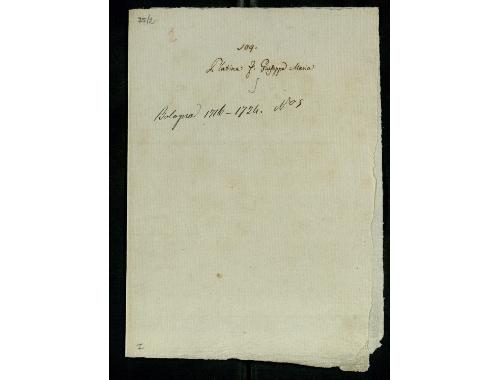 35/2
109.
Platina F. Giuseppe Maria
5
Bologna 1716-1724. No 5
I